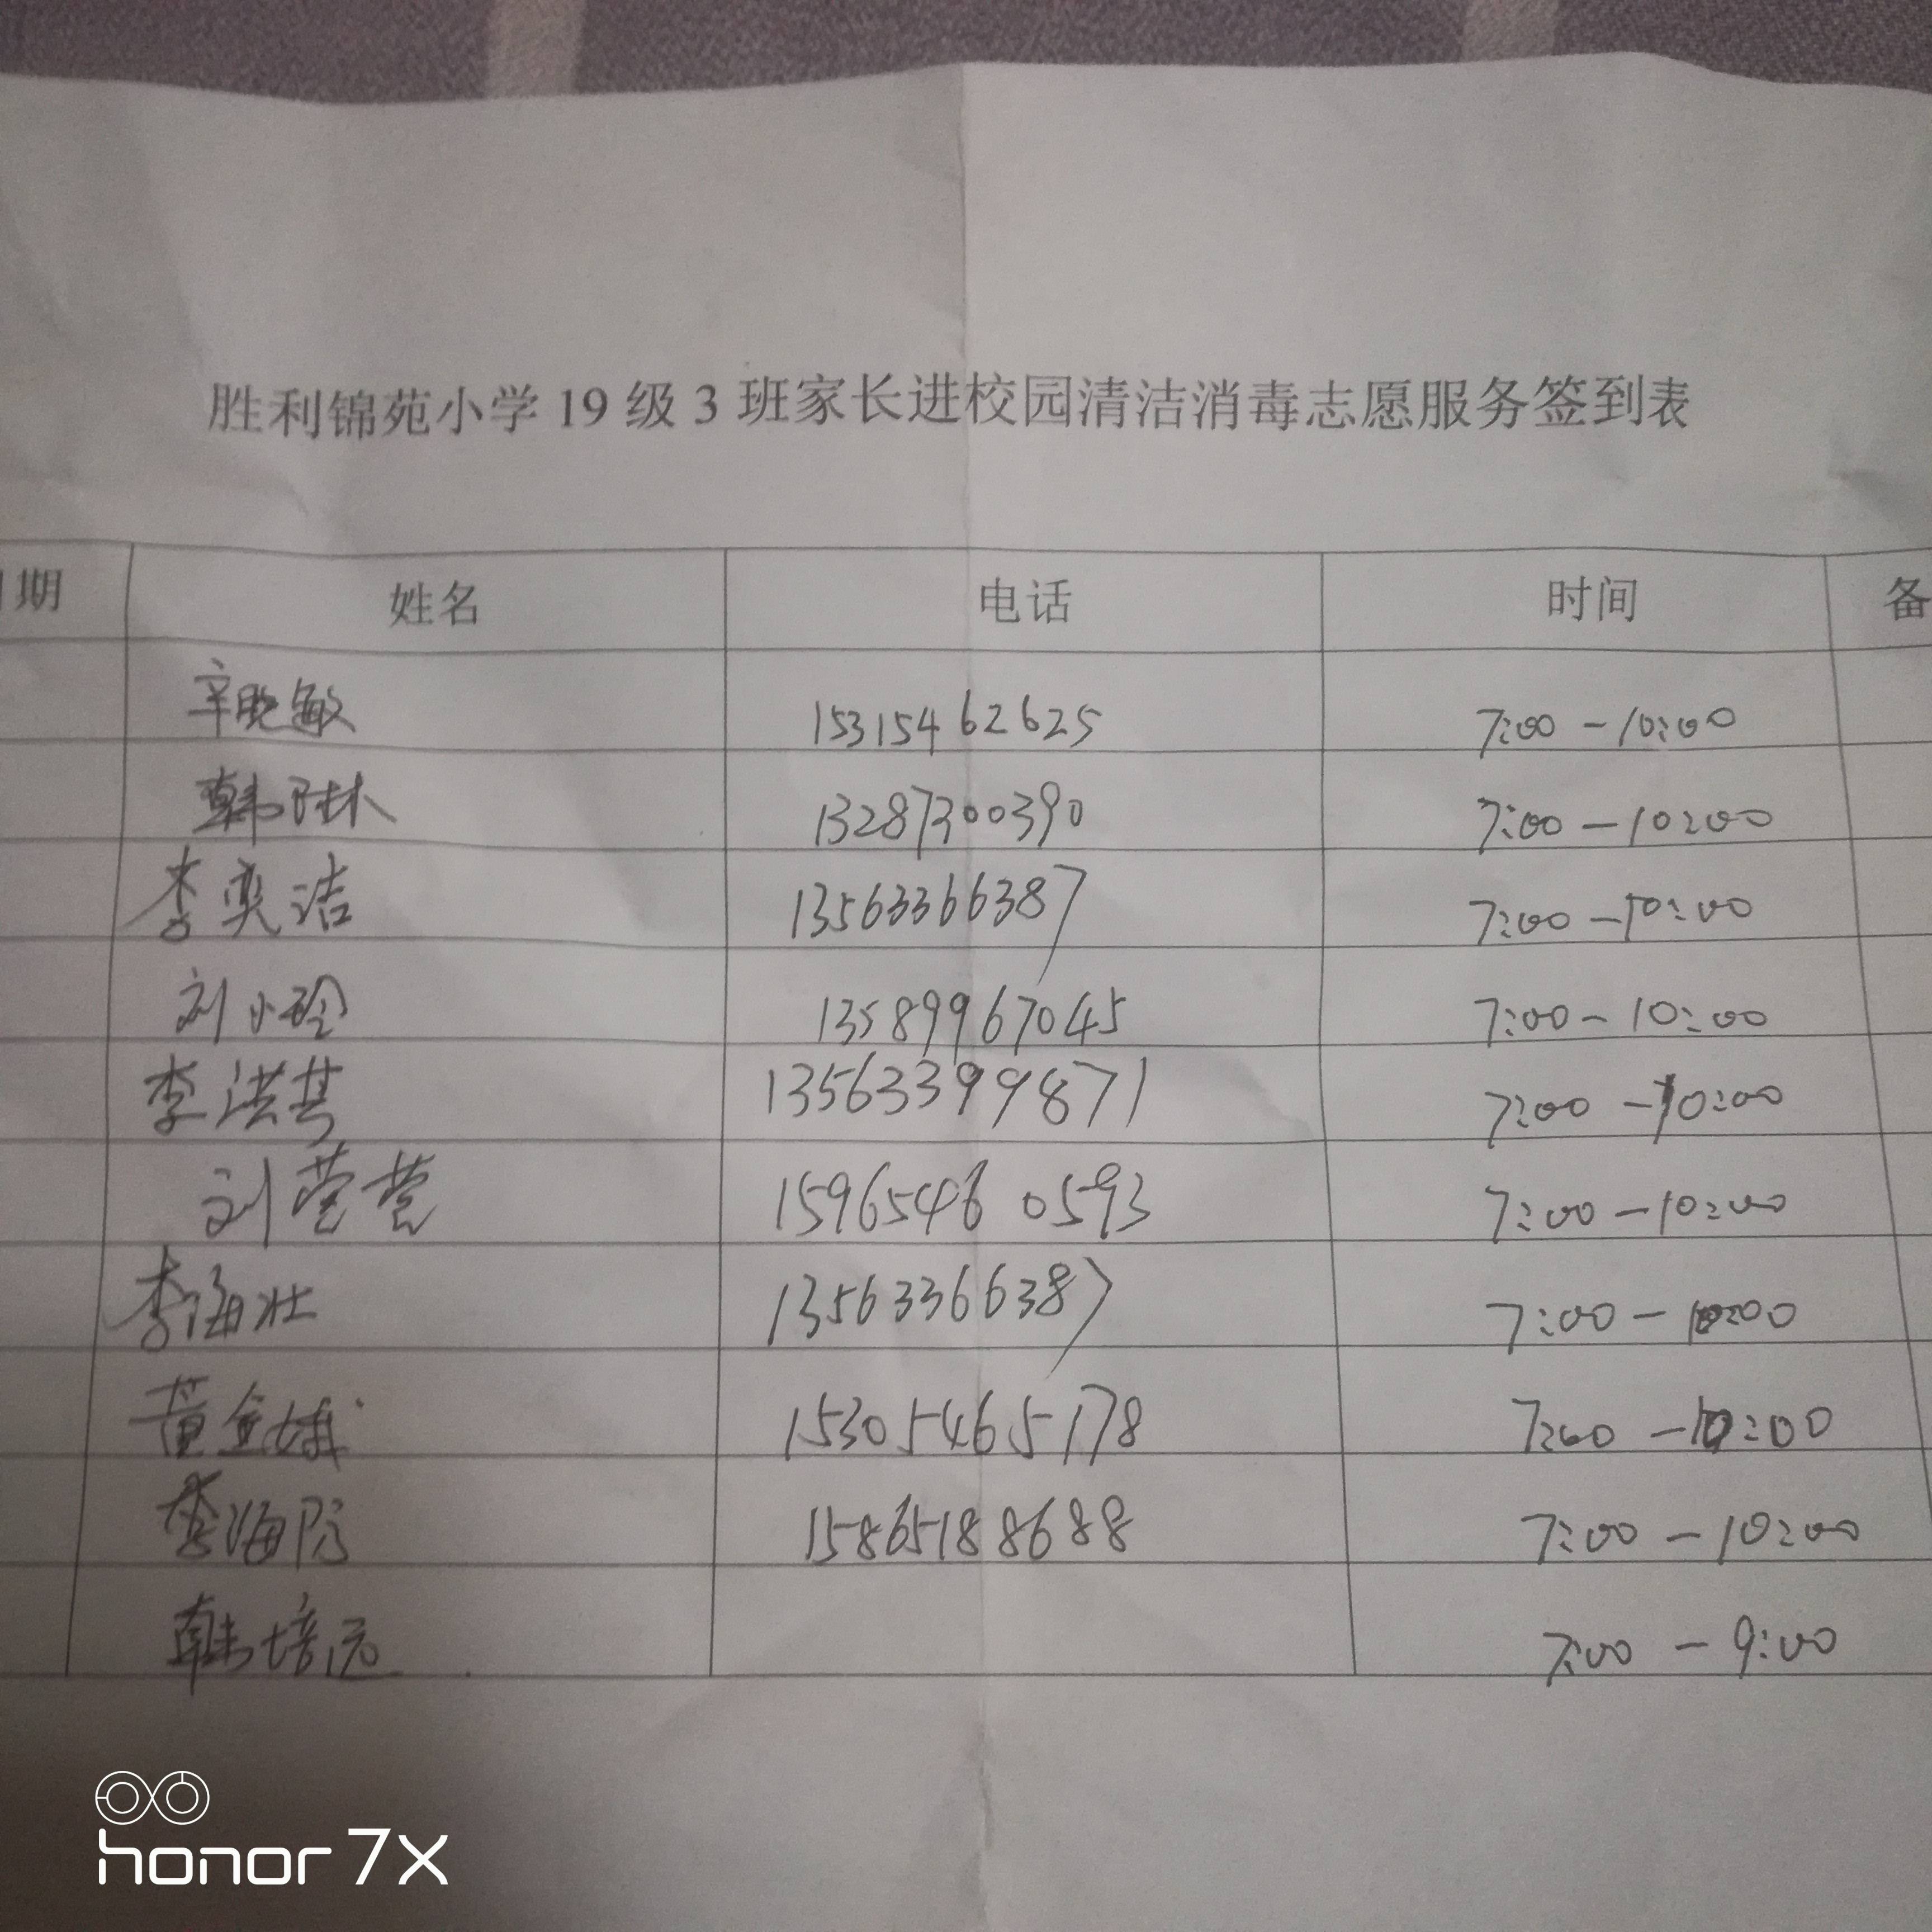 胜利锦苑小学19级3班家长进校园清洁消毒志愿服务签到表
期 姓名 电话 时间 备
辛晓敏 15315462625 7:00-10:00
韩 13287300390 7:00-10:00
李奕洁 13563366387 7:00-10:00
刘小玲 13589967045 7:00-10:00
李洪其 13563399871 7:00-10:00
刘莹莹 15965460593 7:00-10:00
李海壮 13563366387 7:00-10:00
黄金娥 15305465178 7:00-10:00
李海防 15865188688 7:00-10:00
韩培远 7:00-9:00
honor 7X